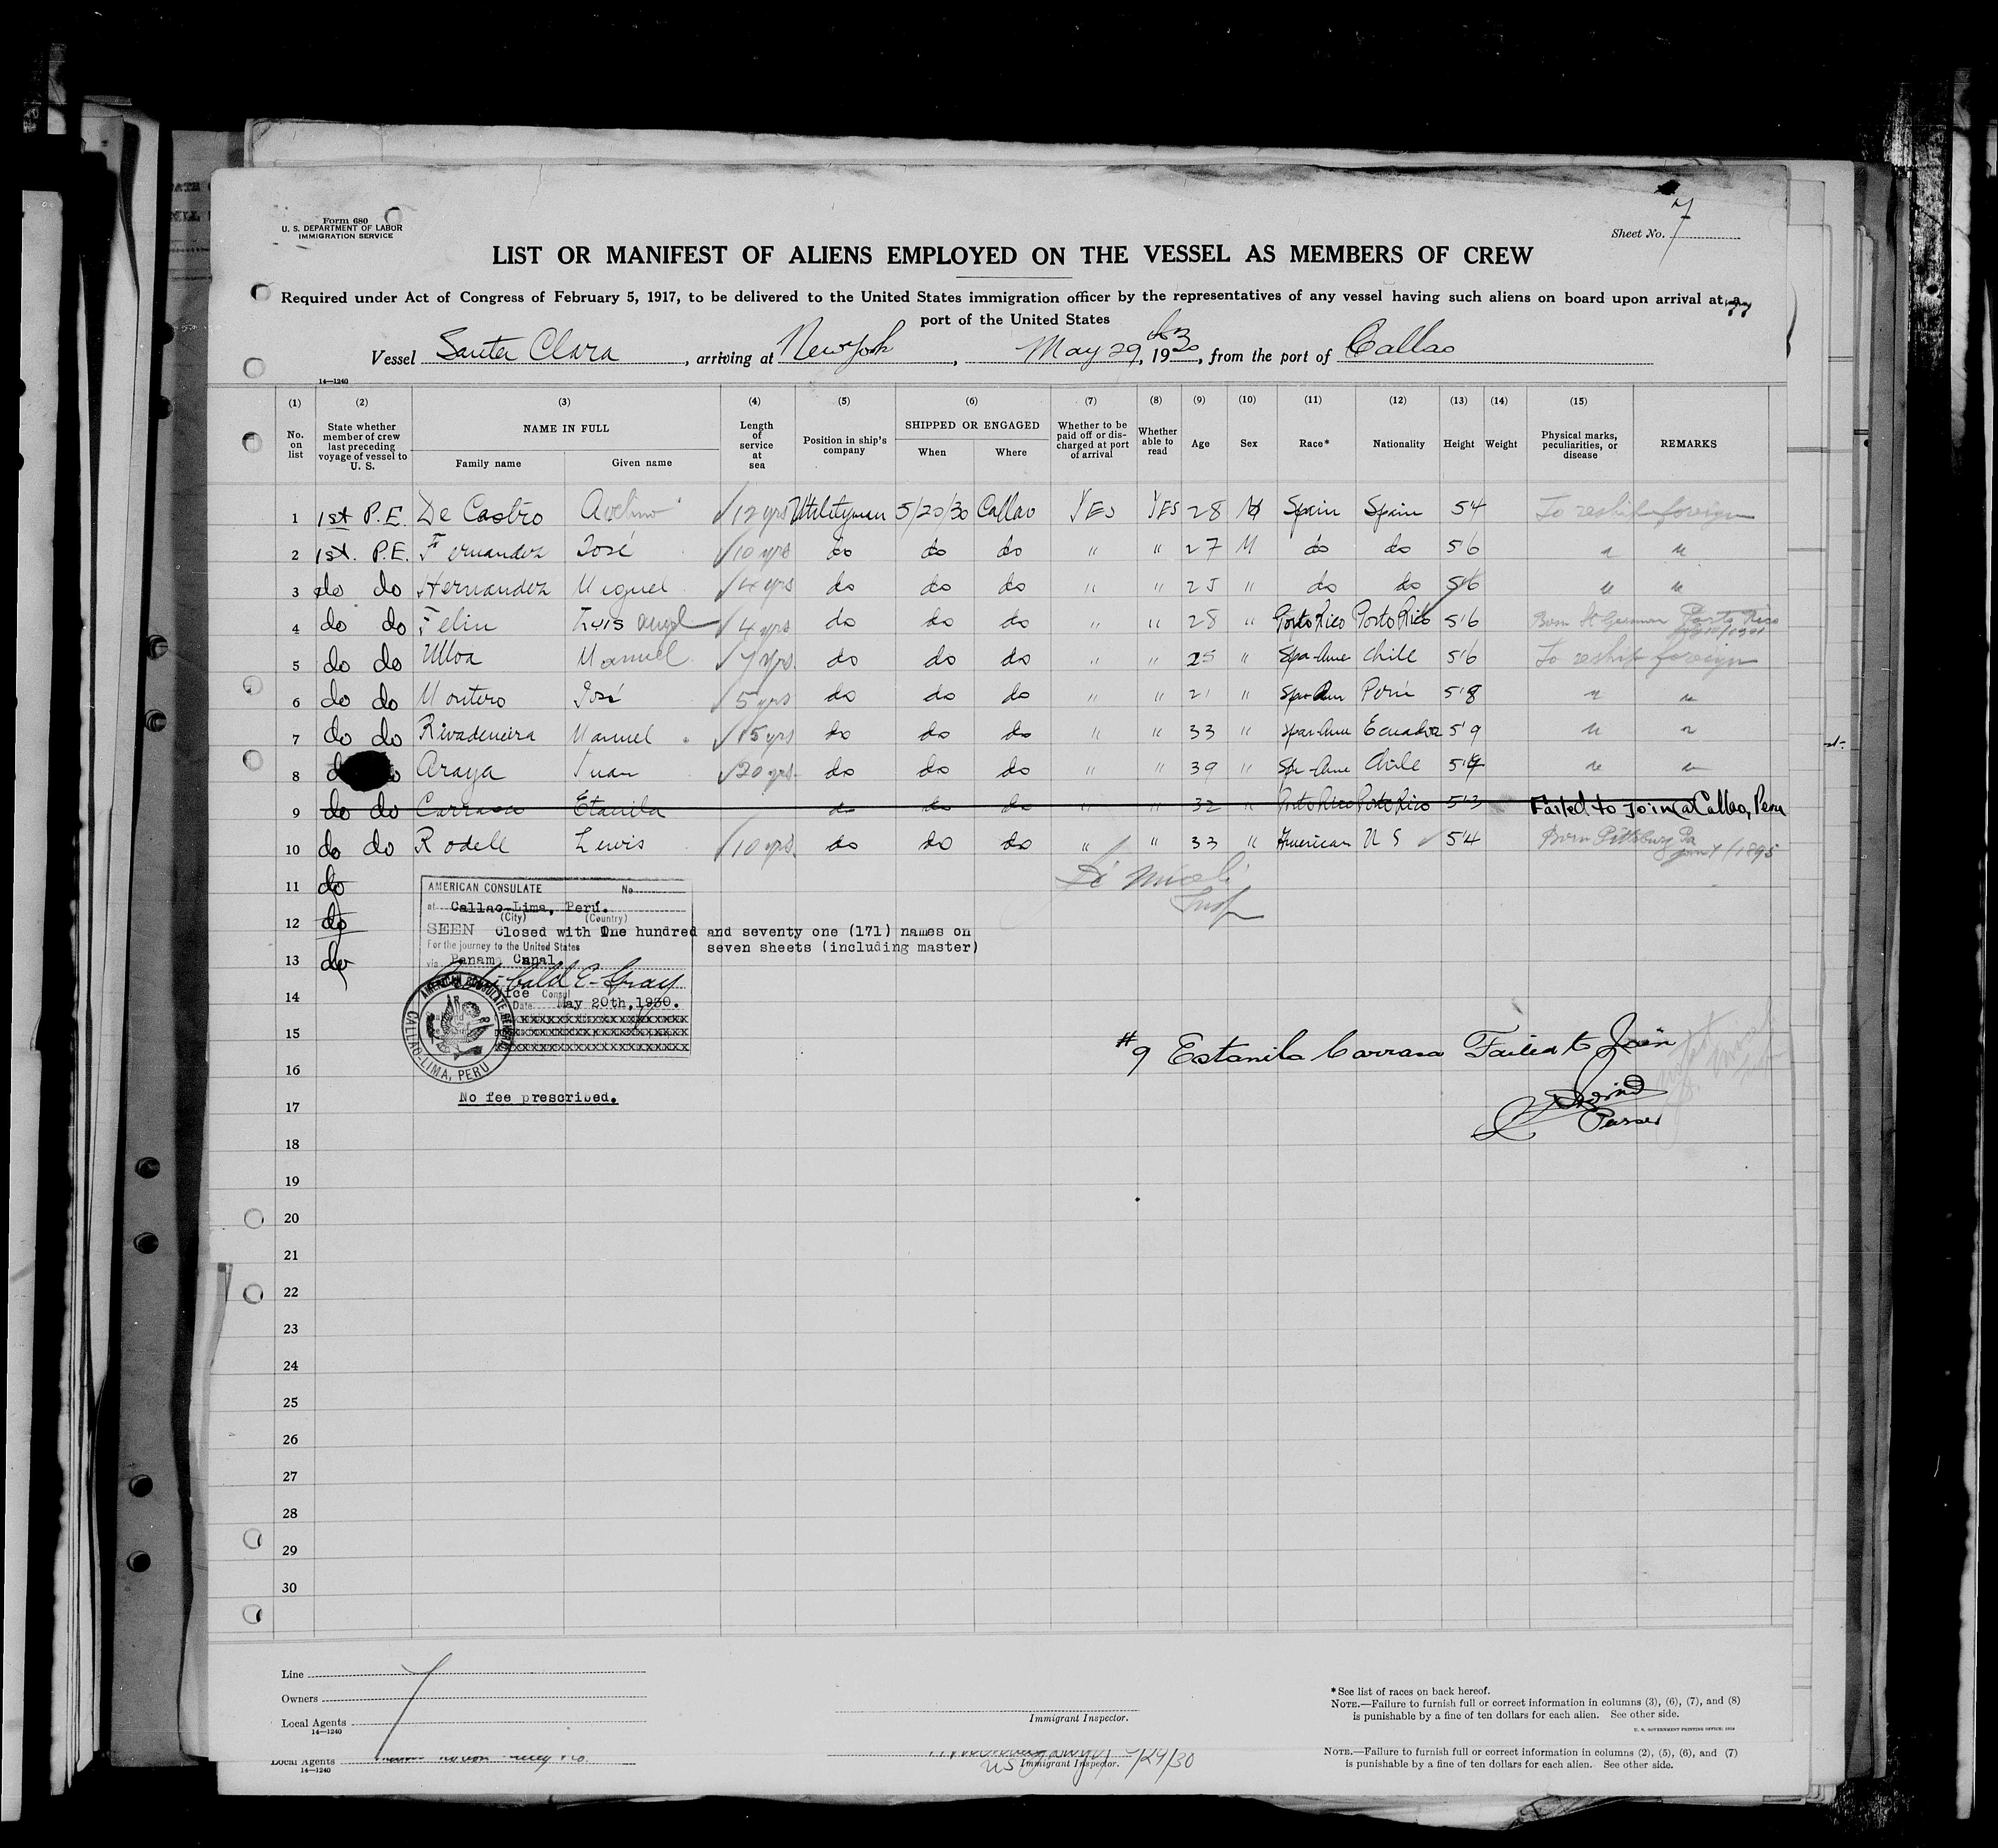 Form 680
U. S. DEPARTMENT OF LABOR
IMMIGRATION SERVICE
Sheet No. 7
LIST OR MANIFEST OF ALIENS EMPLOYED ON THE VESSEL AS MEMBERS OF CREW
Required under Act of Congress of February 5, 1917, to be delivered to the United States immigration officer by the representatives of any vessel having such aliens on board upon arrival at any
port of the United States
Vessel Santa Clara, arriving at New York, May 29, 1930, from the port of Callao
14—1240
(1) (2) (3) (4) (5) (6) (7) (8) (9) (10) (11) (12) (13) (14) (15)
No. on list State whether member of crew last preceding voyage of vessel to U. S. NAME IN FULL Family name Given name Length of service at sea Position in ship's company SHIPPED OR ENGAGED When Where Whether to be paid off or discharged at port of arrival Whether able to read Age Sex Race* Nationality Height Weight Physical marks, peculiarities, or disease REMARKS
1 1st P.E. De Castro Avelino √12 yrs Utilityman 5/20/30 Callao YES YES 28 M Spain Spain 5'4 To reship foreign
2 1st. P.E. Fernandez José √10 yrs do do do " " 27 M do do 5'6 " "
3 do do Hernandez Miguel √4 yrs do do do " " 25 " do do 5'6 " "
4 do do Feliu Luis Angel √4 yrs do do do " " 28 " Porto Rico Porto Rico 5'6 Born St German Porto Rico
5 do do Ulloa Manuel √7 yrs do do do " " 25 " Spa-Ame Chile 5'6 To reship foreign
6 do do Montero José √5 yrs do do do " " 21 " Spa-Am Perú 5'8 " "
7 do do Rivadeneira Manuel √15 yrs do do do " " 33 " Span-Ame Ecuador 5'9 " "
8 do do Araya Juan √20 yrs do do do " " 39 " Spa-Ame Chile 5'4 " "
9 do do Carrasco Etanila do do do " " 32 " Porto Rico Porto Rico 5'3 Failed to join @ Callao, Peru
10 do do Rodell Lewis √10 yrs do do do " " 33 " American U S √ 5'4 Born Pittsburg Pa Jan 4/1895
11 do
12 do
13 do
AMERICAN CONSULATE No.
at Callao-Lima, Perú.
(City) (Country)
SEEN Closed with One hundred and seventy one (171) names on
For the journey to the United States seven sheets (including master)
via Panama Canal
Archibald E. Gray
Vice Consul
Date May 20th, 1930.
AMERICAN CONSULATE GENERAL
CALLAO-LIMA, PERU
No fee prescribed.
14
15
#9 Estanila Carrasco Failed to Join
16
Purser
17
18
19
20
21
22
23
24
25
26
27
28
29
30
Line
Owners
Local Agents
14—1240
Immigrant Inspector.
*See list of races on back hereof.
NOTE.—Failure to furnish full or correct information in columns (3), (6), (7), and (8)
is punishable by a fine of ten dollars for each alien. See other side.
U. S. GOVERNMENT PRINTING OFFICE: 1929
Local Agents
14—1240
Immigrant Inspector. 5/29/30
NOTE.—Failure to furnish full or correct information in columns (2), (5), (6), and (7)
is punishable by a fine of ten dollars for each alien. See other side.